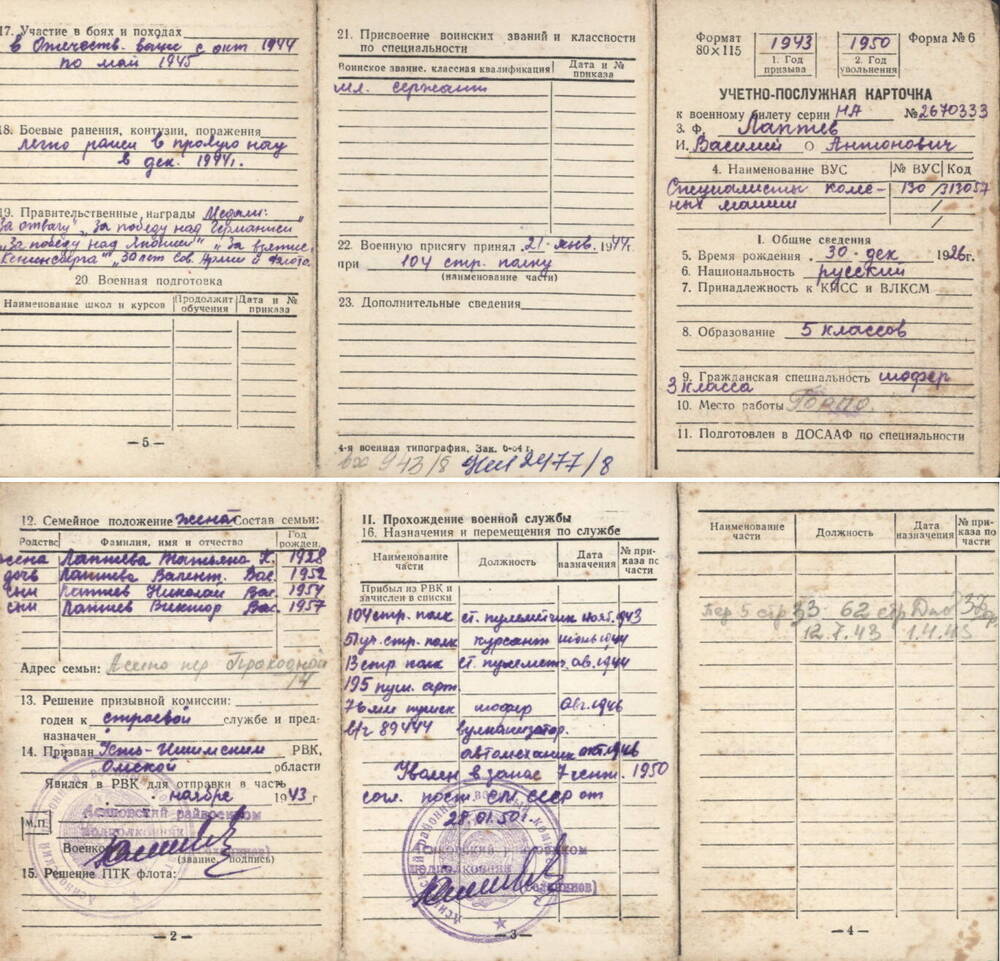 17. Участие в боях и походах
в Отечеств. войне с окт 1944
по май 1945
18. Боевые ранения, контузии, поражения
легко ранен в правую ногу
в дек. 1944г.
19. Правительственные награды Медали:
"За отвагу" "За победу над Германией
"За победу над Японией" "За взятие
Кенигсберга" "30 лет Сов. Армии и Флота
20. Военная подготовка
Наименование школ и курсов Продолжит обучения Дата и № приказа
— 5 —
21. Присвоение воинских званий и классности
по специальности
Воинское звание, классная квалификация Дата и № приказа
мл. сержант
22. Военную присягу принял 21 янв. 1944г.
при 104 стр. полку
(наименование части)
23. Дополнительные сведения
4-я военная типография, Зак.
вх 943/8 2477/8
Формат 80×115
1943
1. Год призыва
1950
2. Год увольнения
Форма № 6
УЧЕТНО-ПОСЛУЖНАЯ КАРТОЧКА
к военному билету серии НА № 2670333
3. Ф. Лаптев
И. Василий О Антонович
4. Наименование ВУС № ВУС Код
Специалисты колес- 130 /313057
ных машин
I. Общие сведения
5. Время рождения 30 дек 1926г.
6. Национальность русский
7. Принадлежность к КПСС и ВЛКСМ
8. Образование 5 классов
9. Гражданская специальность шофер
3 класса
10. Место работы
11. Подготовлен в ДОСААФ по специальности
12. Семейное положение жена Состав семьи:
Родство Фамилия, имя и отчество Год рожден.
жена Лаптева Татьяна К. 1928
дочь Лаптева Валент. Вас. 1952
сын Лаптев Николай Вас 1954
сын Лаптев Виктор Вас. 1957
Адрес семьи: Асино пер Проходной
14
13. Решение призывной комиссии:
годен к строевой службе и пред-
назначен
14. Призван Усть-Ишимским РВК,
Омской области
Явился в РВК для отправки в часть
ноябре 1943 г
Асиновский райвоенком
подполковник
М.П.
Военком
(звание, подпись)
15. Решение ПТК флота:
— 2 —
II. Прохождение военной службы
16. Назначения и перемещения по службе
Наименование части Должность Дата назначения № приказа по части
Прибыл из РВК и
зачислен в списки
104 стр. полк ст. пулемётчик нояб. 1943
5 уч. стр. полк курсант июнь 1944
13 стр полк ст. пулемет. ав. 1944
195 пуш. арт.
76 мм пушек шофер авг. 1946
в/ч 89444 вулканизатор.
автомеханик окт. 1946
Уволен в запас 7 сент. 1950
согл. пост. СМ СССР от
28.01.50г.
подполковник
— 3 —
Наименование части Должность Дата назначения № приказа по части
12.7.43 1.4.43
— 4 —